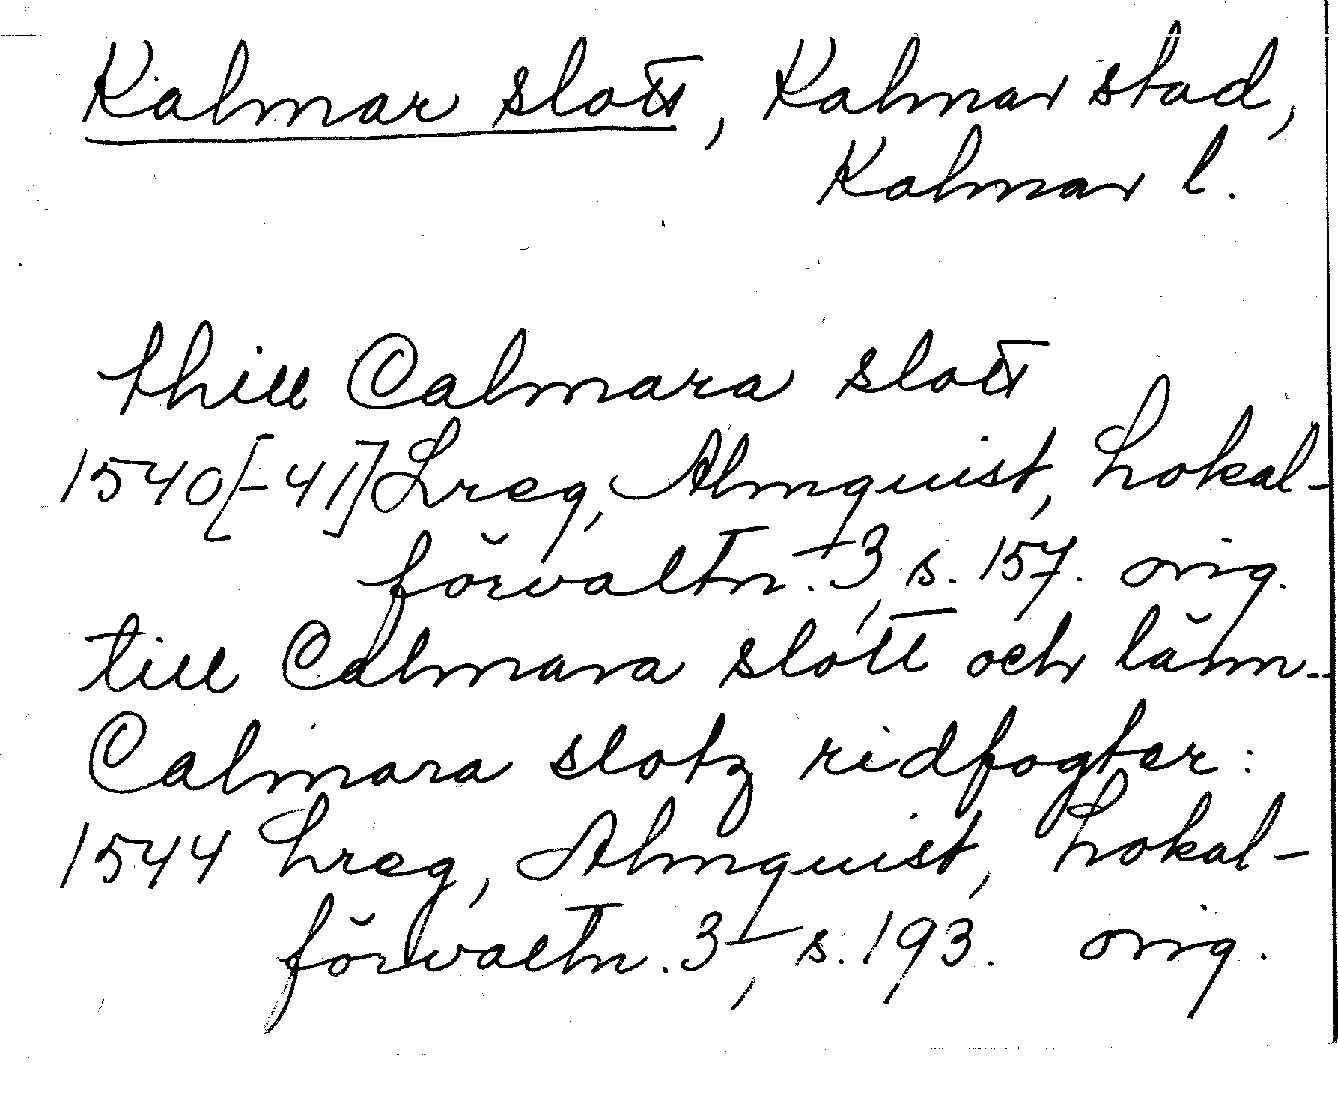 Kalmar slott, Kalmar stad,
Kalmar l.
thill Calmara slott
1540[-41] Lreg, Almquist, Lokal-
förvaltn. 3, s. 157. orig.
till Calmara slott och länn..
Calmara slotz ridfogter:
1544 Lreg, Almquist, Lokal-
förvaltn. 3, s. 193. orig.